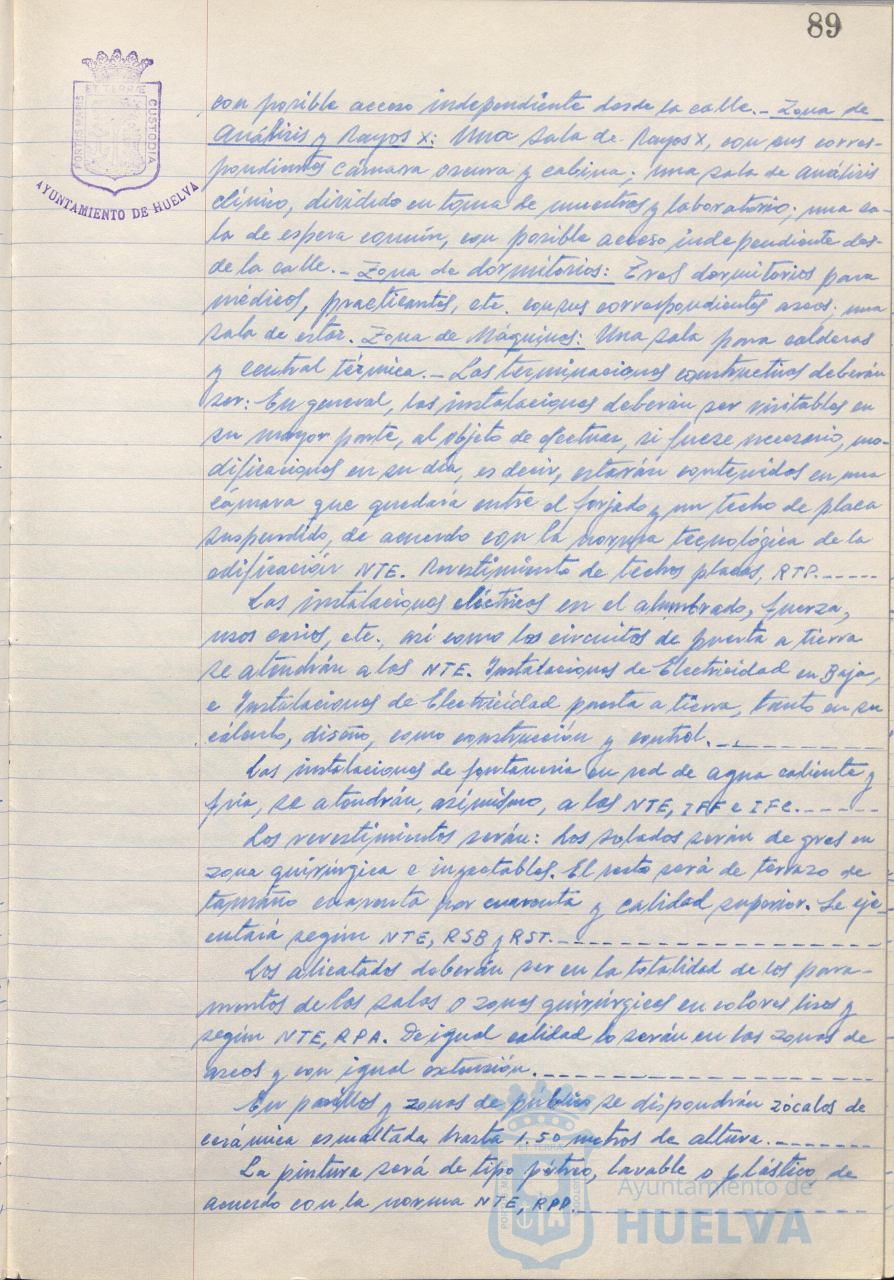 89
PORTUS MARIS ET TERRAE CUSTODIA
AYUNTAMIENTO DE HUELVA
con posible acceso independiente desde la calle.- Zona de
Análisis y Rayos X: Una sala de Rayos X, con sus corres-
pondientes Cámara oscura y cabina; una sala de análisis
clínico, dividido en toma de muestras y laboratorio; una sa-
la de espera común, con posible acceso independiente des-
de la calle.- Zona de dormitorios: Tres dormitorios para
médicos, practicantes, etc. con sus correspondientes aseos; una
sala de estar. Zona de Máquinas: Una sala para calderas
y central térmica.- Las terminaciones constructivas deberán
ser: En general, las instalaciones deberán ser visitables en
su mayor parte, al objeto de efectuar, si fuese necesario, mo-
dificaciones en su día, es decir, estarán contenidas en una
cámara que quedaría entre el forjado y un techo de placa
suspendido, de acuerdo con la norma tecnológica de la
edificación NTE. Revestimiento de techos placas, RTP.-----
Las instalaciones eléctricas en el alumbrado, fuerza,
usos varios, etc., así como los circuitos de puesta a tierra
se atendrán a las NTE. Instalaciones de Electricidad en Baja,
e Instalaciones de Electricidad puesta a tierra, tanto en su
cálculo, diseño, como construcción y control.-----
Las instalaciones de fontanería en red de agua caliente y
fría, se atendrán, asimismo, a las NTE, IFF e IFC.-----
Los revestimientos serán: Los solados serán de gres en
zona quirúrgica e inyectables. El resto será de terrazo de
tamaño cuarenta por cuarenta y calidad superior. Se eje-
cutará según NTE, RSB y RST.-----
Los alicatados deberán ser en la totalidad de los para-
mentos de las salas o zonas quirúrgicas en colores lisos y
según NTE, RPA. De igual calidad lo serán en las zonas de
aseos y con igual extensión.-----
En pasillos y zonas de público se dispondrán zócalos de
cerámica esmaltada, hasta 1.50 metros de altura.-----
La pintura será de tipo pétreo, lavable o plástico, de
acuerdo con la norma NTE, RPP.-----
Ayuntamiento de
HUELVA